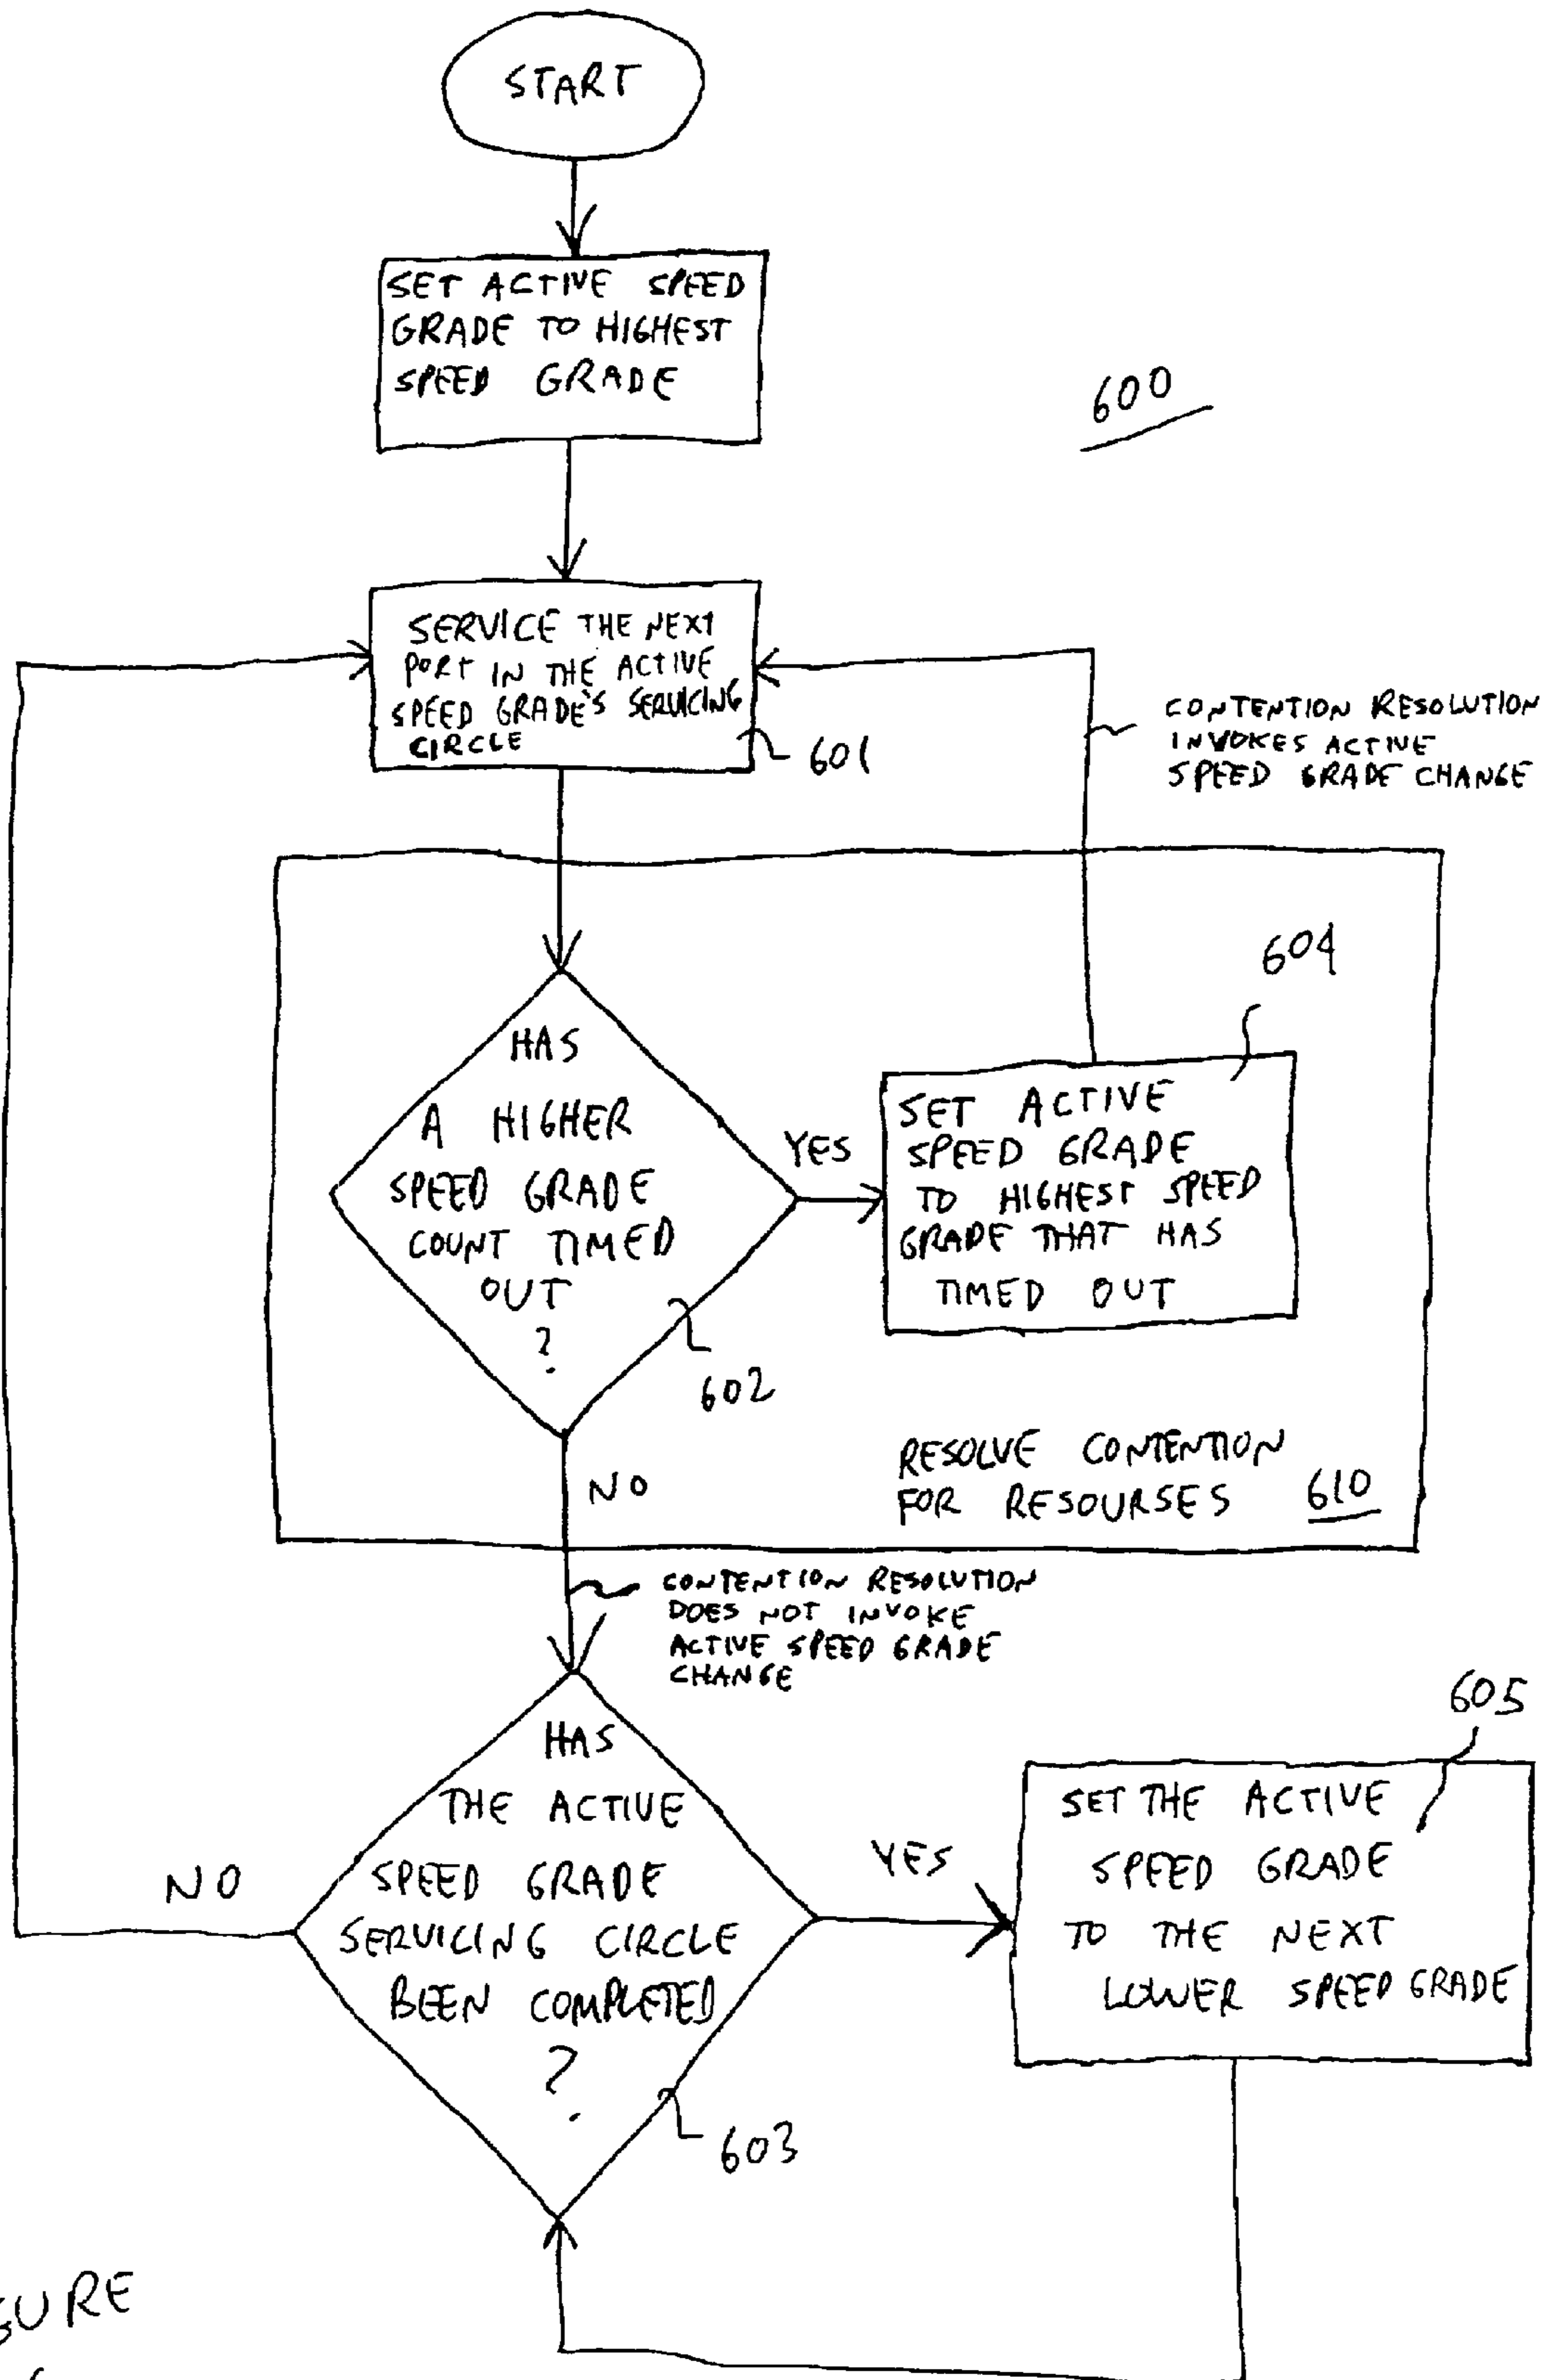 START
SET ACTIVE SPEED
GRADE TO HIGHEST
SPEED GRADE
600
SERVICE THE NEXT
PORT IN THE ACTIVE
SPEED GRADE'S SERVICING
CIRCLE
601
CONTENTION RESOLUTION
INVOKES ACTIVE
SPEED GRADE CHANGE
604
HAS
A HIGHER
SPEED GRADE
COUNT TIMED
OUT
?
YES
SET ACTIVE
SPEED GRADE
TO HIGHEST SPEED
GRADE THAT HAS
TIMED OUT
602
NO
RESOLVE CONTENTION
FOR RESOURSES 610
CONTENTION RESOLUTION
DOES NOT INVOKE
ACTIVE SPEED GRADE
CHANGE
605
HAS
THE ACTIVE
SPEED GRADE
SERVICING CIRCLE
BEEN COMPLETED
?
NO
YES
SET THE ACTIVE
SPEED GRADE
TO THE NEXT
LOWER SPEED GRADE
603
GURE